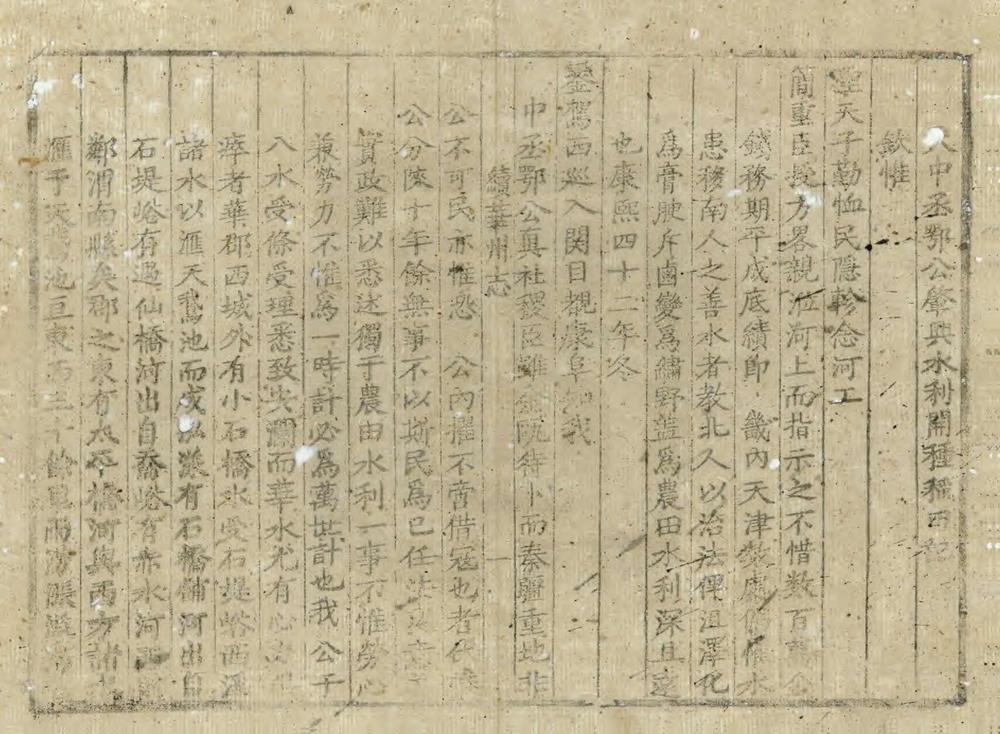 中丞鄂公肇興水利開種稻田記
欽惟
聖天子勤恤民隱軫念河工
簡重臣授方畧親涖河上而指示之不惜数百萬金
錢務期平成底績即畿內天津數處仍惟水
患移南人之善水者教北人以治法俾沮澤化
爲膏腴斥鹵變爲繡野蓋爲農田水利深且遠
也康熙四十二年冬
鑾駕西巡入関目覩康阜知我
中丞鄂公真社稷臣雖 阮待小而秦疆重地非
續華州志
公不可民亦惟恐 公內擢不啻借寇也者
公分陝十年餘無事不以斯民爲己任
實政難以悉述獨于農田水利一事不惟勞心
兼勞力不惟爲一時計必爲萬世計也我公于
八水受條受理悉致安瀾而華水尤有心
瘁者華郡西城外有小石橋水受石堤峪西溪
諸水以滙天鵝池而成泓 有石橋舖河出自
石堤峪有遇仙橋河出自喬峪有赤水河
鄰渭南縣矣郡之東有太平橋河與西方諸
滙于天 池亘東西三十餘里兩